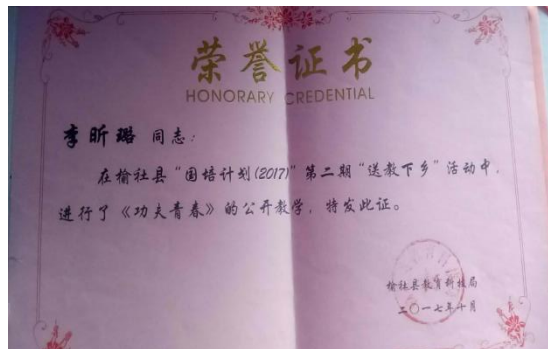 荣誉证书
HONORARY CREDENTIAL
李昕璐 同志：
在榆社县“国培计划(2017)”第二期“送教下乡”活动中，
进行了《功夫青春》的公开教学，特发此证。
榆社县教育科技局
二〇一七年十月